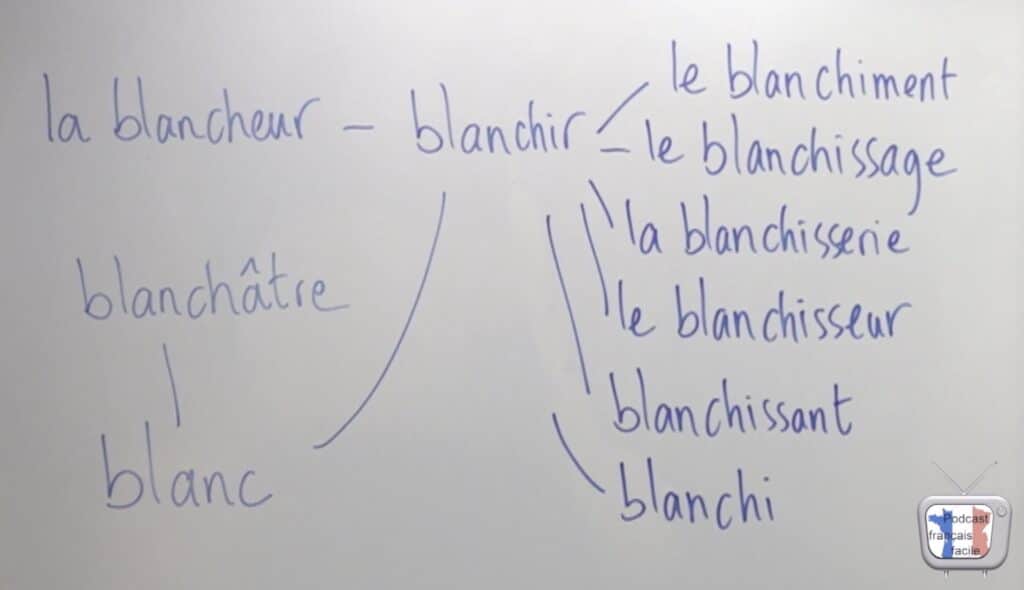 la blancheur – blanchir – le blanchiment
le blanchissage
la blanchisserie
blanchâtre
le blanchisseur
blanchissant
blanc
blanchi
Podcast
français
facile